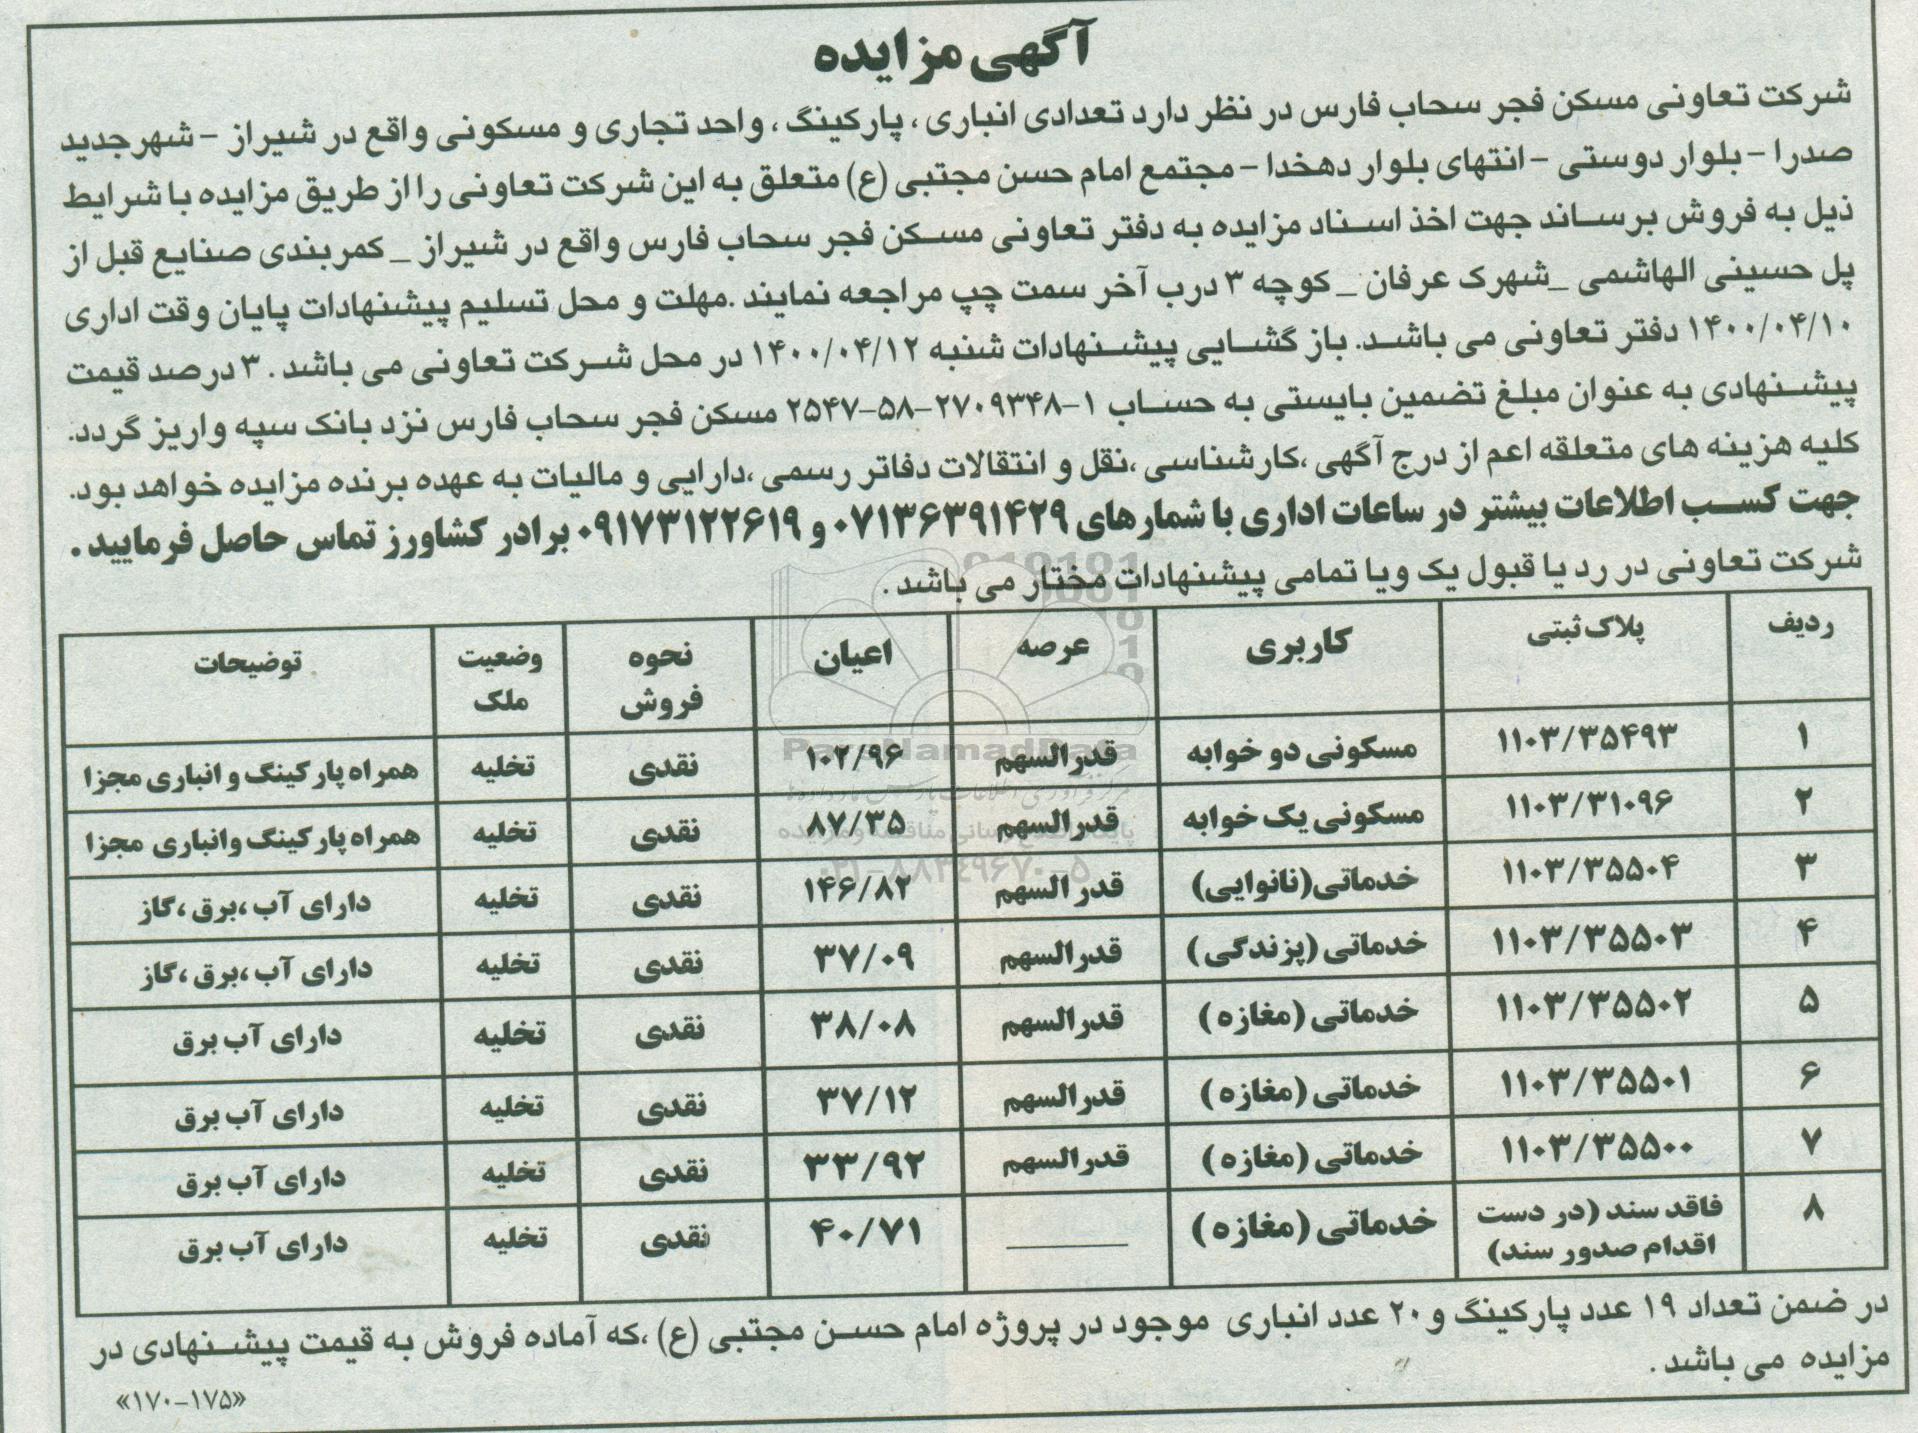 آگهی مزایده
شرکت تعاونی مسکن فجر سحاب فارس در نظر دارد تعدادی انباری ، پارکینگ ، واحد تجاری و مسکونی واقع در شیراز - شهرجدید
صدرا - بلوار دوستی - انتهای بلوار دهخدا - مجتمع امام حسن مجتبی (ع) متعلق به این شرکت تعاونی را از طریق مزایده با شرایط
ذیل به فروش برساند جهت اخذ اسناد مزایده به دفتر تعاونی مسکن فجر سحاب فارس واقع در شیراز _ کمربندی صنایع قبل از
پل حسینی الهاشمی _شهرک عرفان _ کوچه ۳ درب آخر سمت چپ مراجعه نمایند .مهلت و محل تسلیم پیشنهادات پایان وقت اداری
۱۴۰۰/۰۴/۱۰ دفتر تعاونی می باشد. باز گشایی پیشنهادات شنبه ۱۴۰۰/۰۴/۱۲ در محل شرکت تعاونی می باشد . ۳ درصد قیمت
پیشنهادی به عنوان مبلغ تضمین بایستی به حساب ۱-۲۷۰۹۳۴۸-۵۸-۲۵۴۷ مسکن فجر سحاب فارس نزد بانک سپه واریز گردد.
کلیه هزینه های متعلقه اعم از درج آگهی ،کارشناسی ،نقل و انتقالات دفاتر رسمی ،دارایی و مالیات به عهده برنده مزایده خواهد بود.
جهت کسب اطلاعات بیشتر در ساعات اداری با شمارهای ۰۷۱۳۶۳۹۱۴۲۹ و ۰۹۱۷۳۱۲۲۶۱۹ برادر کشاورز تماس حاصل فرمایید .
شرکت تعاونی در رد یا قبول یک ویا تمامی پیشنهادات مختار می باشد .
ردیف پلاک ثبتی کاربری عرصه اعیان نحوه فروش وضعیت ملک توضیحات
۱ ۱۱۰۳/۳۵۴۹۳ مسکونی دو خوابه قدرالسهم ۱۰۲/۹۶ نقدی تخلیه همراه پارکینگ و انباری مجزا
۲ ۱۱۰۳/۳۱۰۹۶ مسکونی یک خوابه قدرالسهم ۸۷/۳۵ نقدی تخلیه همراه پارکینگ وانباری مجزا
۳ ۱۱۰۳/۳۵۵۰۴ خدماتی(نانوایی) قدرالسهم ۱۴۶/۸۲ نقدی تخلیه دارای آب ،برق ،گاز
۴ ۱۱۰۳/۳۵۵۰۳ خدماتی (پزندگی) قدرالسهم ۳۷/۰۹ نقدی تخلیه دارای آب ،برق ،گاز
۵ ۱۱۰۳/۳۵۵۰۲ خدماتی (مغازه) قدرالسهم ۳۸/۰۸ نقدی تخلیه دارای آب برق
۶ ۱۱۰۳/۳۵۵۰۱ خدماتی (مغازه) قدرالسهم ۳۷/۱۲ نقدی تخلیه دارای آب برق
۷ ۱۱۰۳/۳۵۵۰۰ خدماتی (مغازه) قدرالسهم ۳۳/۹۲ نقدی تخلیه دارای آب برق
۸ فاقد سند (در دست اقدام صدور سند) خدماتی (مغازه) ـــــــ ۴۰/۷۱ نقدی تخلیه دارای آب برق
در ضمن تعداد ۱۹ عدد پارکینگ و۲۰ عدد انباری موجود در پروژه امام حسن مجتبی (ع) ،که آماده فروش به قیمت پیشنهادی در
مزایده می باشد .
«۱۷۰-۱۷۵»
ParsNamadData
۰۲۱-۸۸۳۴۹۶۷۰-۵